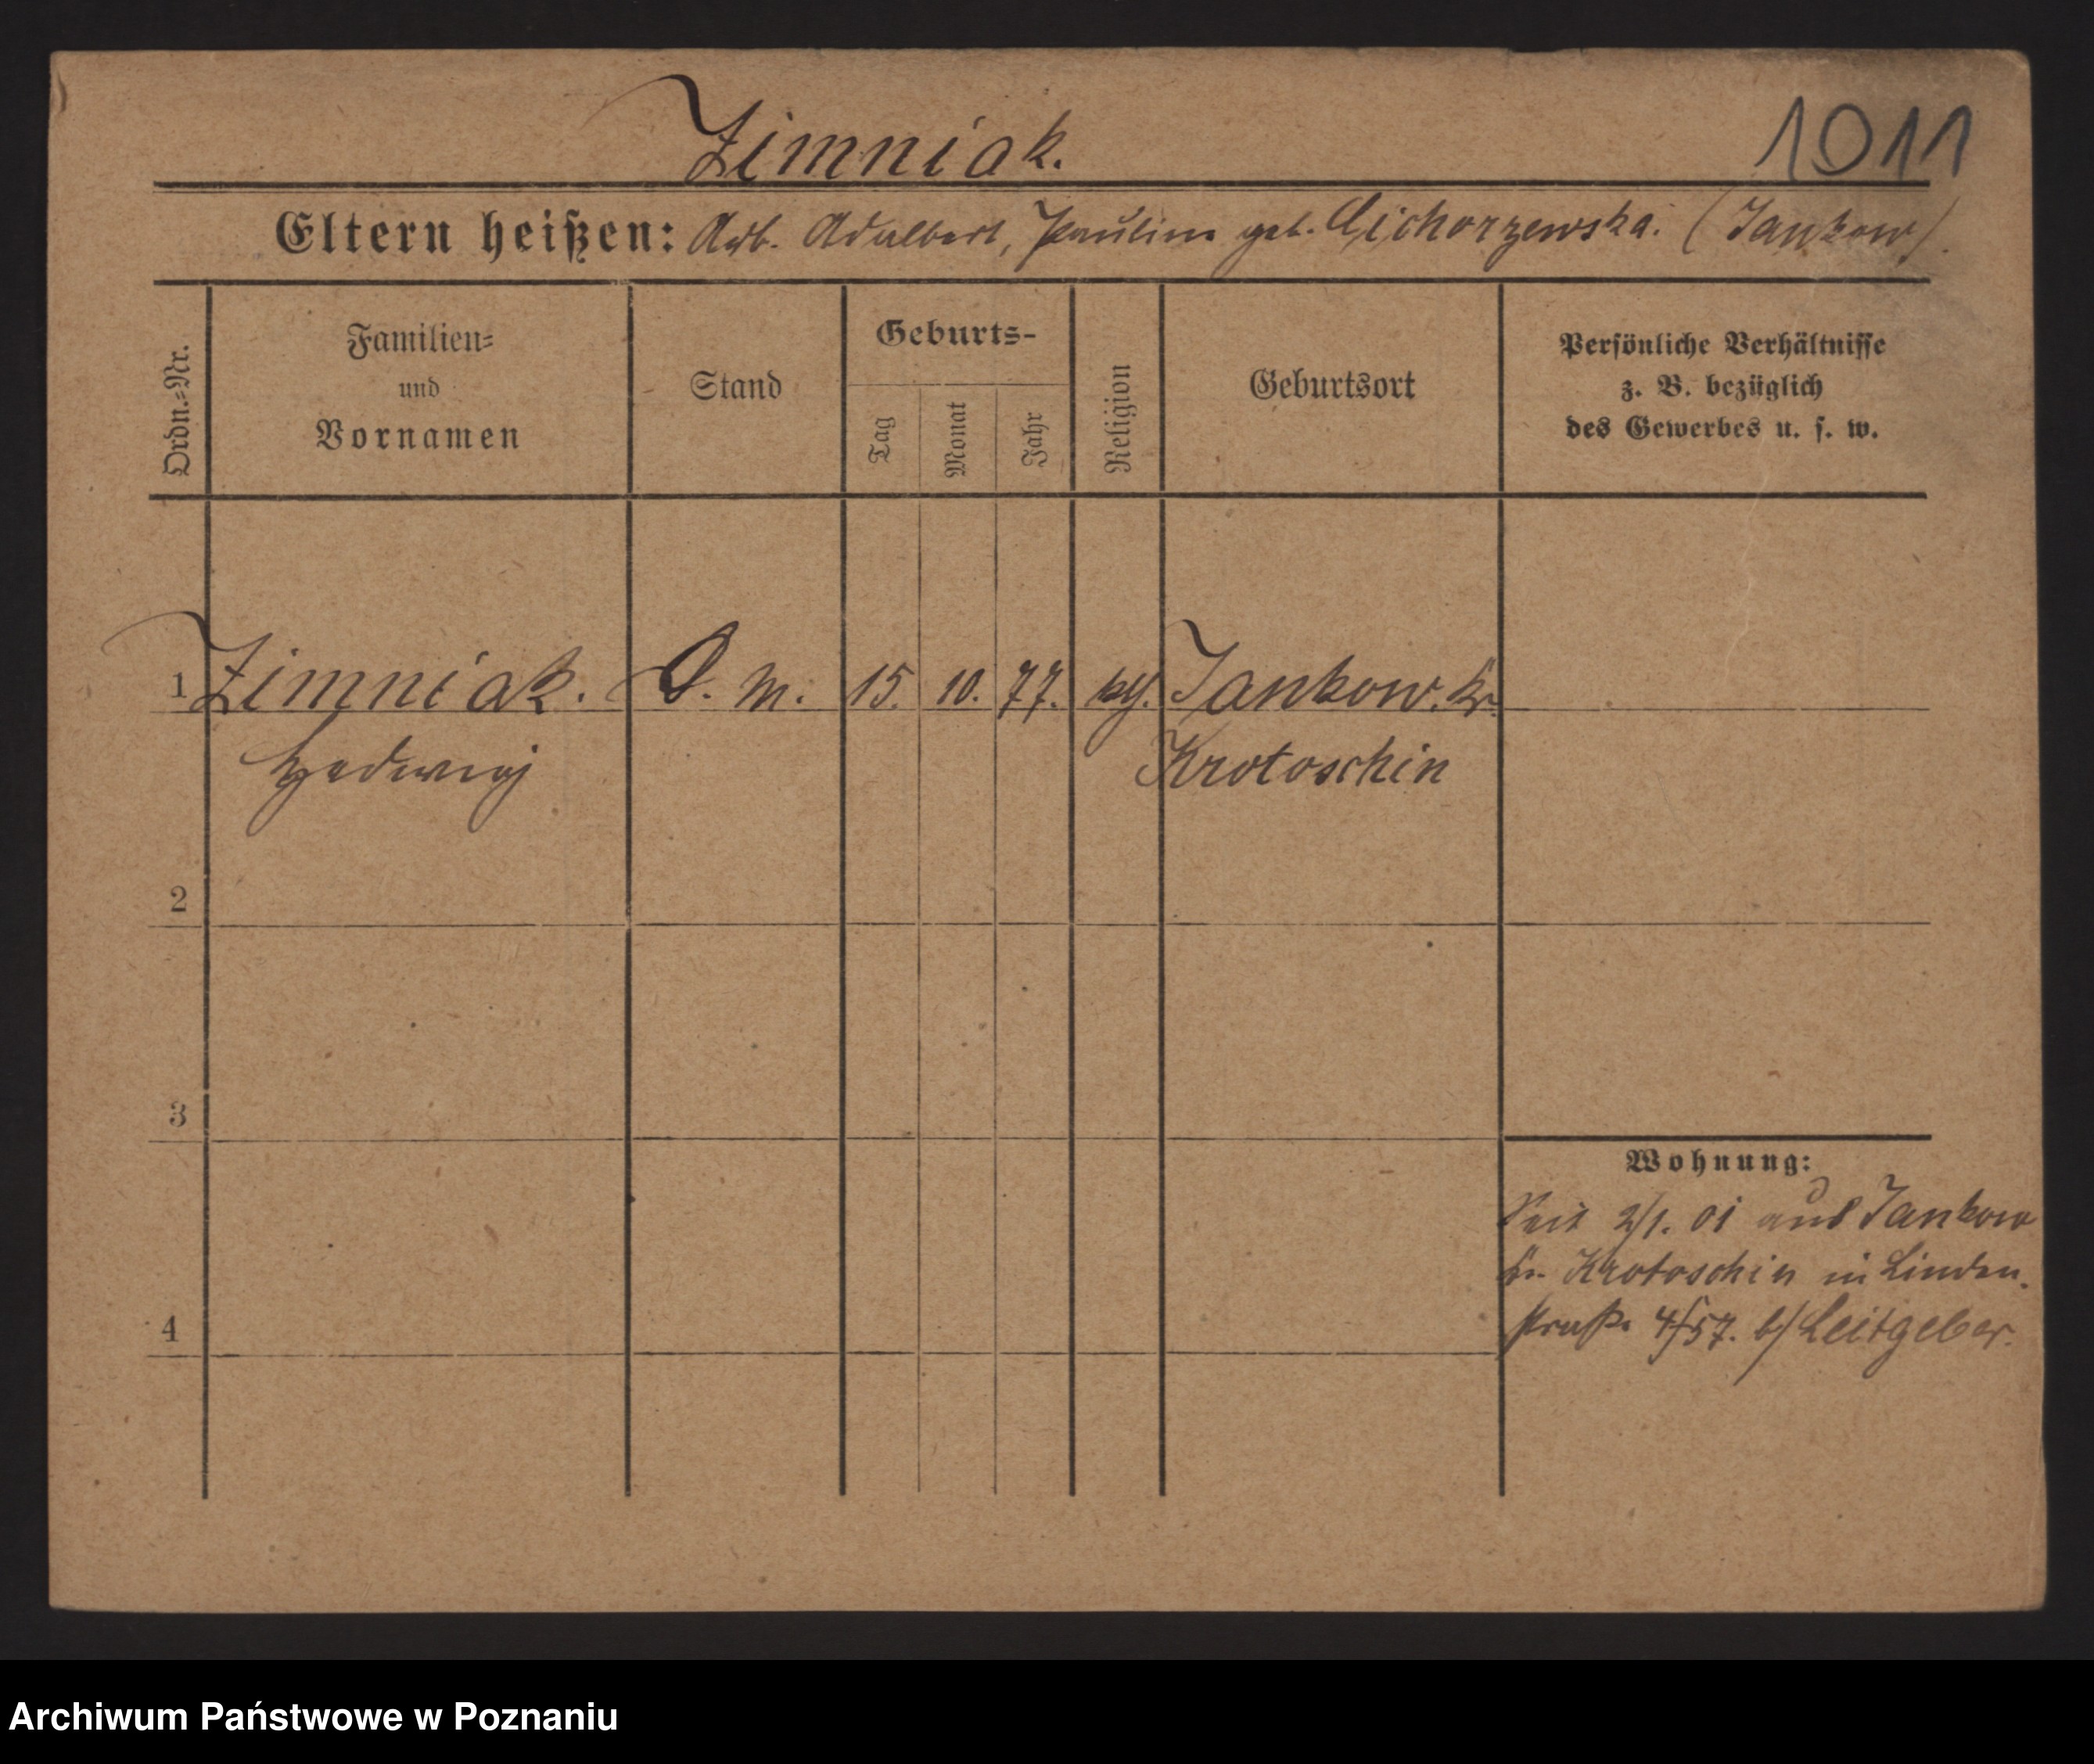 Zimniak.
1011
Eltern heißen: Arb. Adalbert, Pauline geb. Cichorzewska. (Jankow).
Ordn.-Nr.
Familien-
und
Vornamen
Stand
Geburts-
Tag
Monat
Jahr
Religion
Geburtsort
Persönliche Verhältnisse
z. B. bezüglich
des Gewerbes u. s. w.
1 Zimniak. D. M. 15. 10. 77. kg. Jankow. Kr.
Hedwig Krotoschin
2
3
Wohnung:
Seit 2/1. 01 aus Jankow
Kr. Krotoschin in Linden-
straße 4/57. b/ Leitgeber.
4
Archiwum Państwowe w Poznaniu